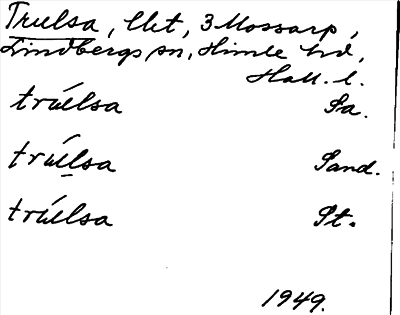 Truelsa, lht, 3 Mossarp,
Lindbergs sn, Himle hd,
Hall. l.
trúelsa Sa.
trúelsa Sand.
trúelsa St.
1949.